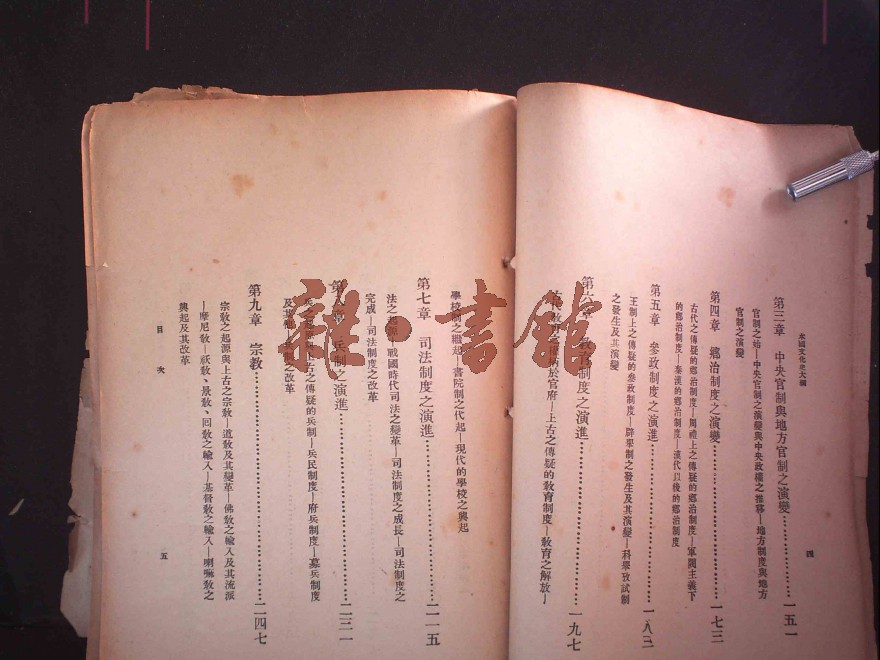 本國文化史大綱
四
第三章 中央官制與地方官制之演變…………一五一
官制之始—中央官制之演變與中央政權之推移—地方制度與地方
官制之演變
第四章 鄉治制度之演變…………一七三
古代之傳疑的鄉治制度—周禮上之傳疑的鄉治制度—軍閥主義下
的鄉治制度—秦漢的鄉治制度—漢代以後的鄉治制度
第五章 參政制度之演進…………一八三
王制上之傳疑的參政制度—辟舉制之發生及其演變—科舉攷試制
之發生及其演變
第六章 教育制度之演進…………一九七
於官府—上古之傳疑的教育制度—教育之解放—
學校制之繼起—書院制之代起—現代的學校之興起
第七章 司法制度之演進…………二一五
法之起源—戰國時代司法之變革—司法制度之成長—司法制度之
完成—司法制度之改革
第八章 兵制之演進…………二三一
上古之傳疑的兵制—兵民制度—府兵制度—募兵制度
及其 之改革
第九章 宗教…………二四七
宗教之起源與上古之宗教—道教及其變革—佛教之輸入及其流派
—摩尼教—祆教、景教、回教之輸入—基督教之輸入—喇嘛教之
興起及其改革
目次
五
雜·書館